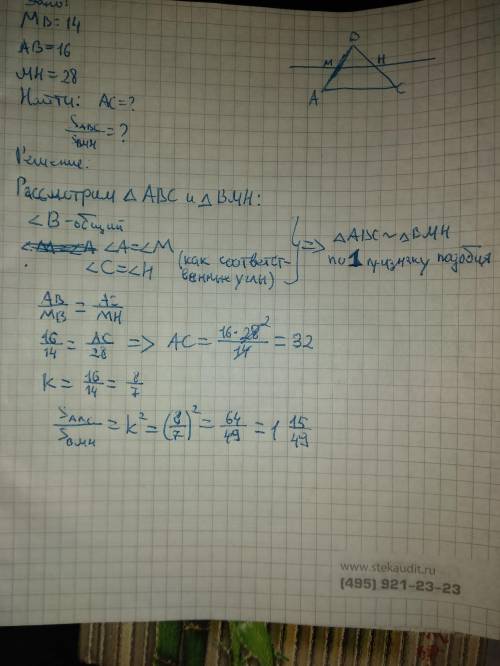 Дано:
MB = 14
AB = 16
MH = 28
Найти: AC = ?
S_ABC / S_BMH = ?
Решение:
Рассмотрим △ ABC и △ BMH:
∠B - общий
∠A = ∠M
∠C = ∠H (как соответственные углы)
=> △ABC ~ △BMH
по 1 признаку подобия
AB / MB = AC / MH
16/14 = AC/28 => AC = 16·28 / 14 = 32
K = 16/14 = 8/7
S_ABC / S_BMH = K² = (8/7)² = 64/49 = 1 15/49
B
M H
A C
www.stekaudit.ru
(495) 921-23-23